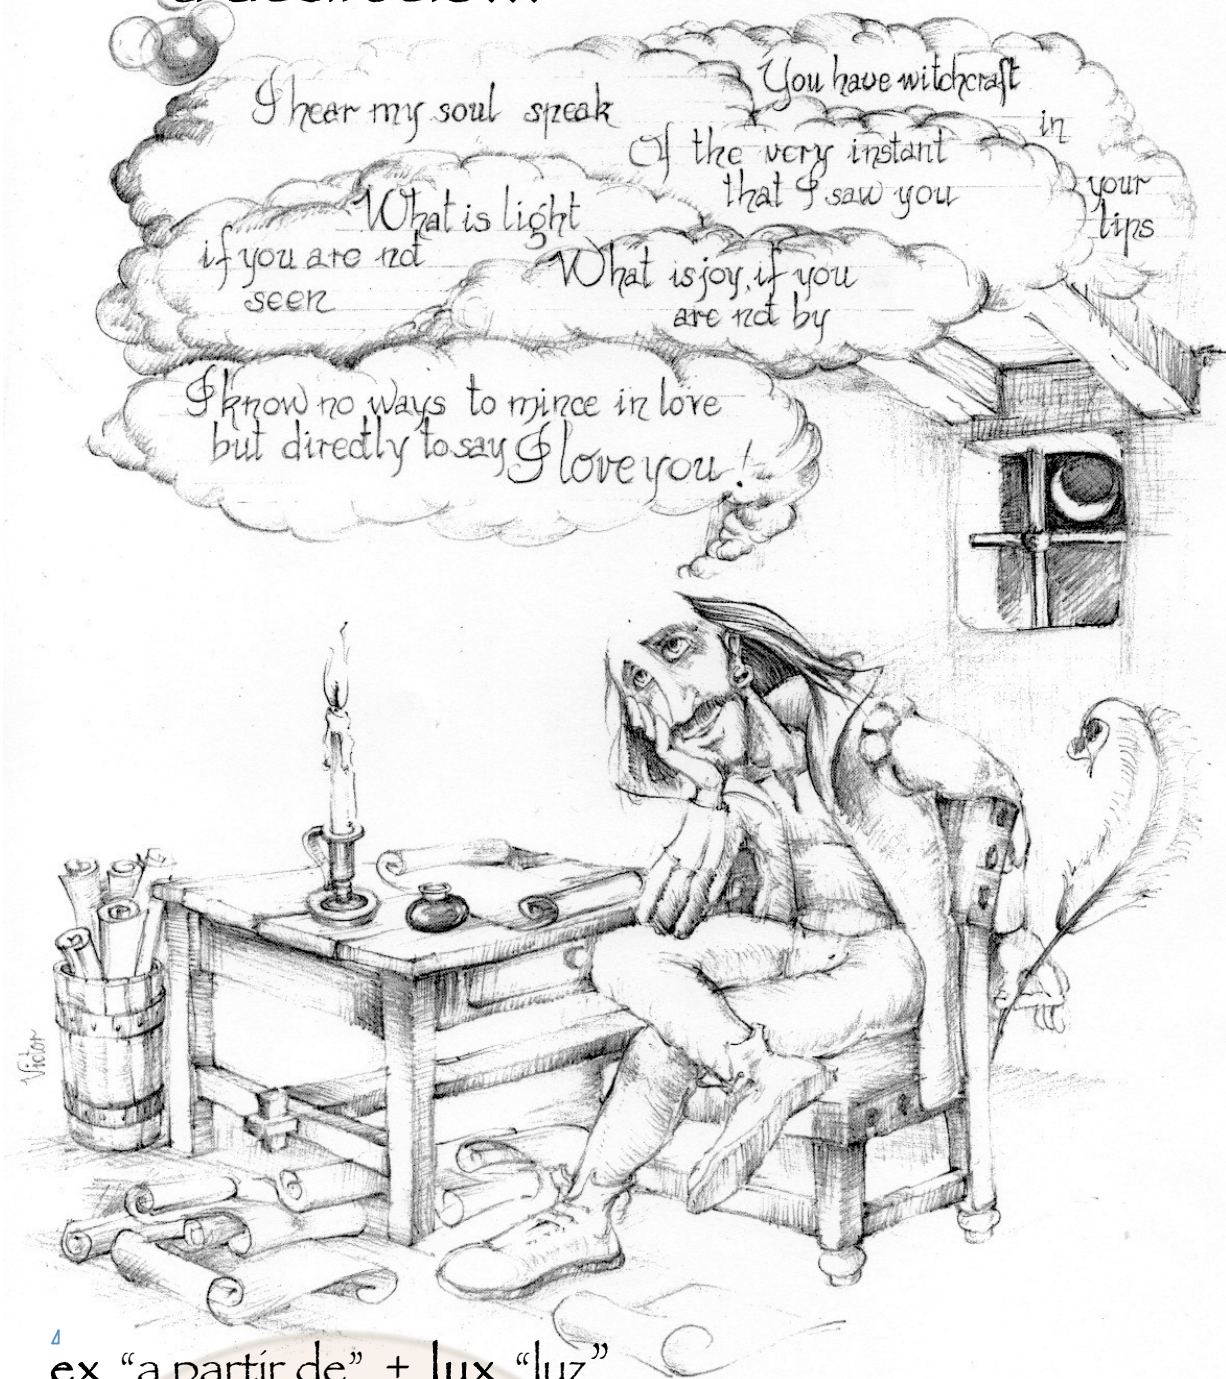 I hear my soul speak
You have witchcraft
in
your
lips
Of the very instant
that I saw you
What is light
if you are not
seen
What is joy, if you
are not by
I know no ways to mince in love
but directly to say I love you!
Victor
ex “a partir de” + lux “luz”